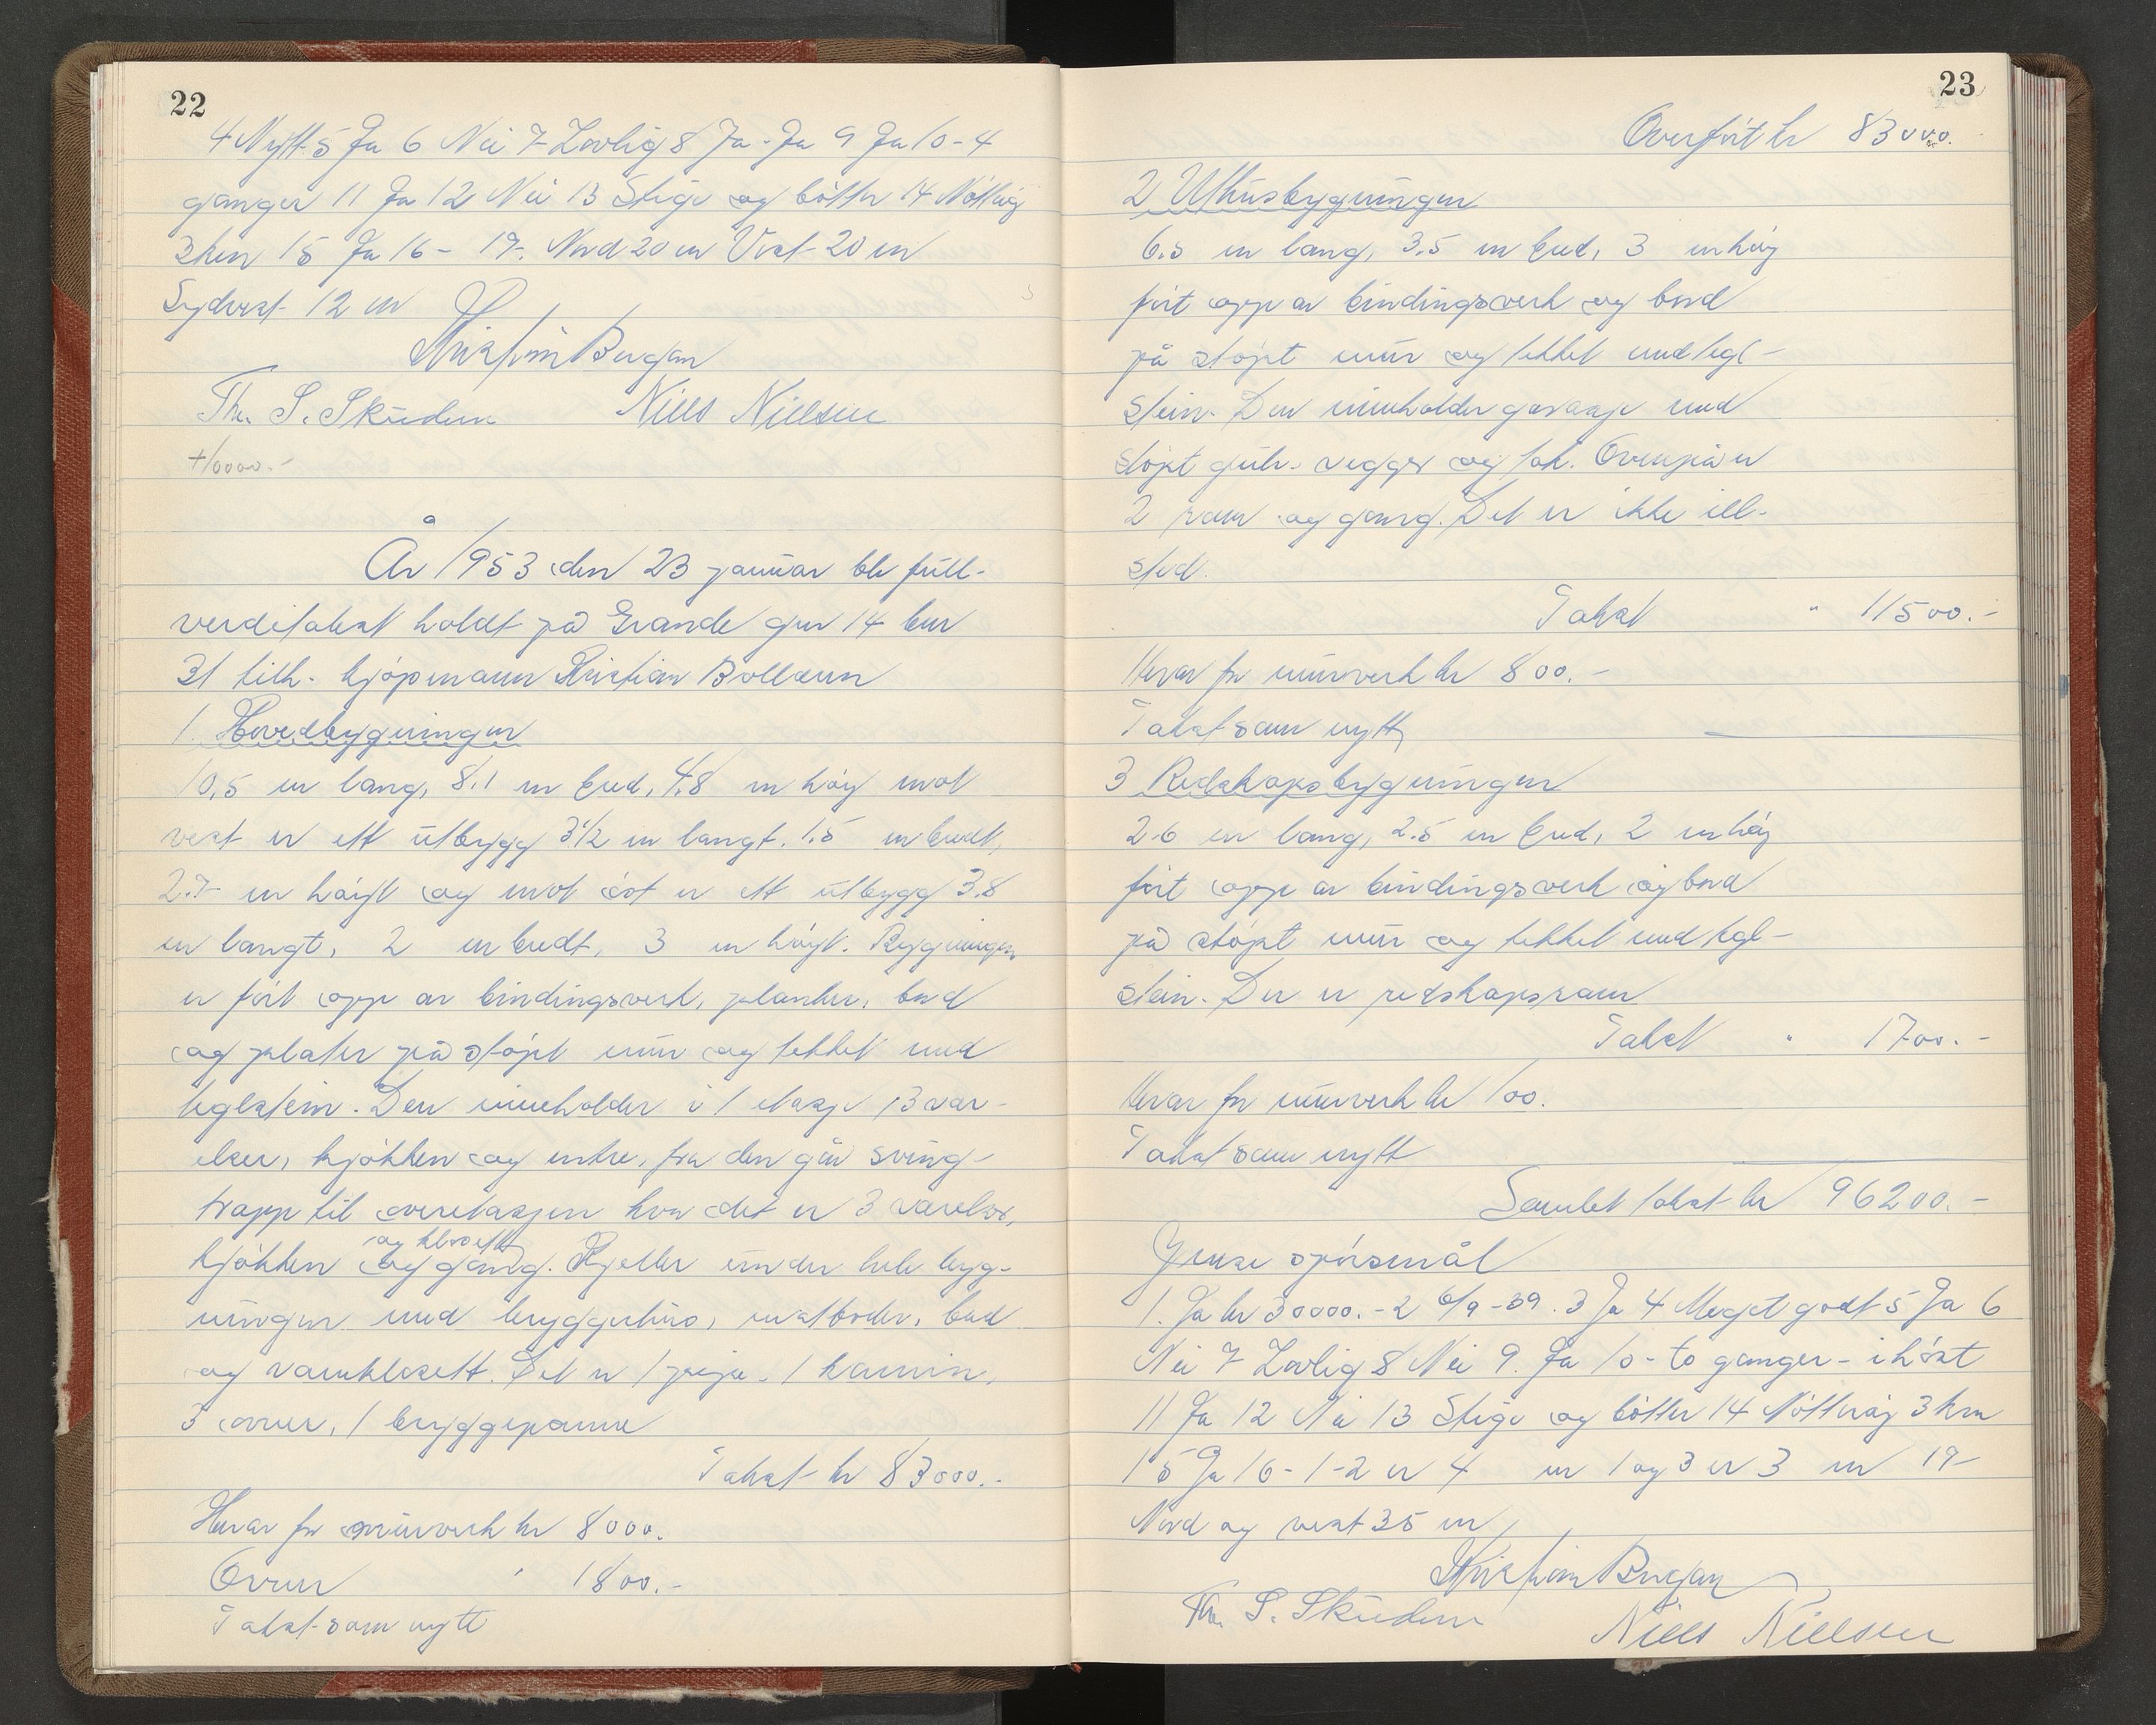 22
4 Nytt 5 Ja 6 Nei 7 Lovlig 8 Ja - Ja 9 Ja 10 - 4
ganger 11 Ja 12 Nei 13 Stige og bøtter 14 Nøtterøy
3 km 15 Ja 16 - 17. Nord 20 m Vest 20 m
Sydvest 12 m
Kristian Bergan
Th. S. Skuden Niels Nielsen
+10000.-
År 1953 den 23 januar ble full-
verditakst holdt på Grande gnr 14 bnr
31 tilh. kjøpmann Kristian Bollærn
1. Hovedbygningen
10,5 m lang, 8,1 m bred, 4,8 m høy mot
vest er ett utbygg 3½ m langt. 1.5 m bredt,
2.7 m høyt og mot øst er ett utbygg 3.8
m langt, 2 m bredt, 3 m høyt. Bygningen
er ført opp av bindingsverk, planker, bord
og plater på støpt mur og tekket med
teglstein. Den inneholder i 1 etasje 3 vær-
elser, kjøkken og entre, fra den går sving-
trapp til overetasjen hvor det er 3 værelser,
og klosett
kjøkken og gang. Kjeller under hele byg-
ningen med bryggerhus, matboder, bad
og vannklosett. Det er 1 peipe, 1 kamin,
3 ovner, 1 bryggepanne
Takst kr 83000.-
Herav for murverk kr 8000.
Ovner " 1800.-
Takst som nytt
23
Overført kr 83000.
2 Uthusbygningen
6.5 m lang, 3.5 m bred, 3 m høy
ført opp av bindingsverk og bord
på støpt mur og tekket med tegl-
stein. Den inneholder garasje med
støpt gulv, vegger og tak. Ovenpå er
2 rom og gang. Det er ikke ill-
sted.
Takst " 11500.-
Herav for murverk kr 800.-
Takst som nytt
3 Redskapsbygningen
2.6 m lang, 2.5 m bred, 2 m høy
ført opp av bindingsverk og bord
på støpt mur og tekket med tegl-
stein. Der er redskapsrom
Takst " 1700.-
Herav for murverk kr 100.
Takst som nytt
Samlet takst kr 96200.-
Jense spørsmål
1. Ja kr 30000.- 2 6/9-39. 3 Ja 4 Meget godt 5 Ja 6
Nei 7 Lovlig 8 Nei 9. Ja 10 - to ganger - i høst
11 Ja 12 Nei 13 Stige og bøtter 14 Nøtterøy 3 km
15 Ja 16 - 1-2 er 4 m 1 og 3 er 3 m 17-
Nord og vest 35 m
Kristian Bergan
Th. S. Skuden Niels Nielsen